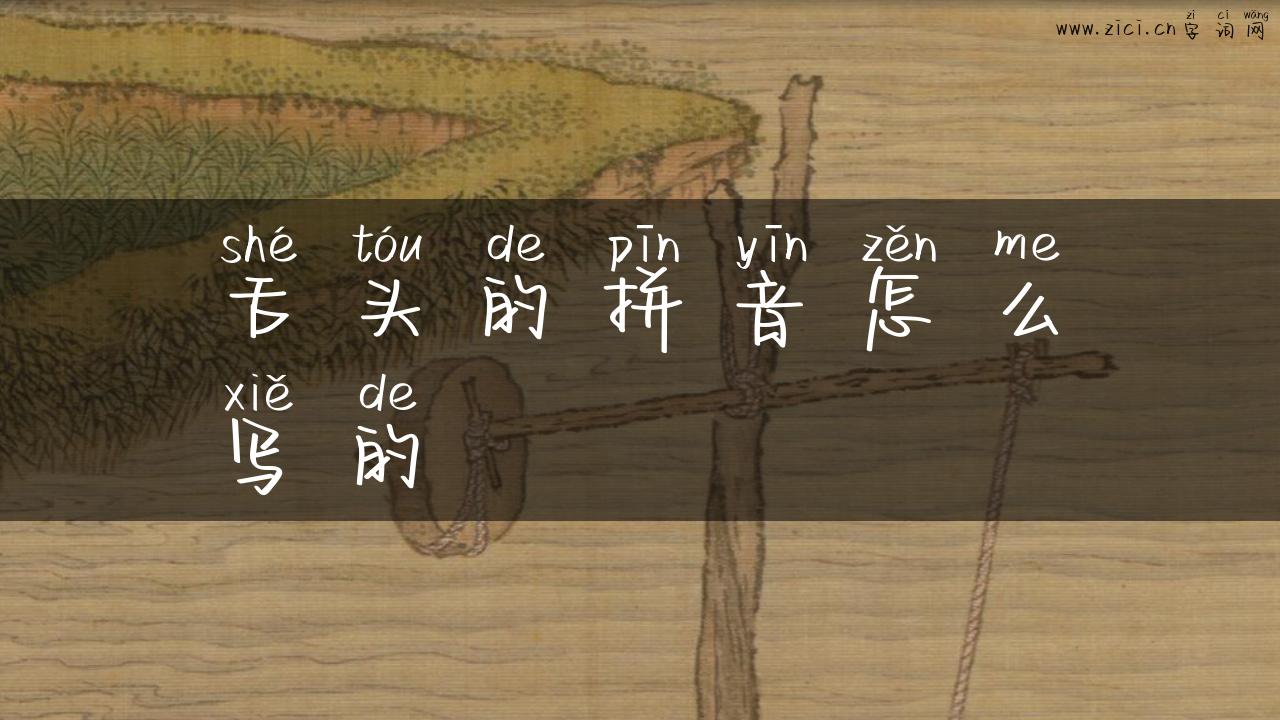 zì cí wǎng
www.zici.cn 字 词 网
shé tóu de pīn yīn zěn me
舌 头 的 拼 音 怎 么
xiě de
写 的